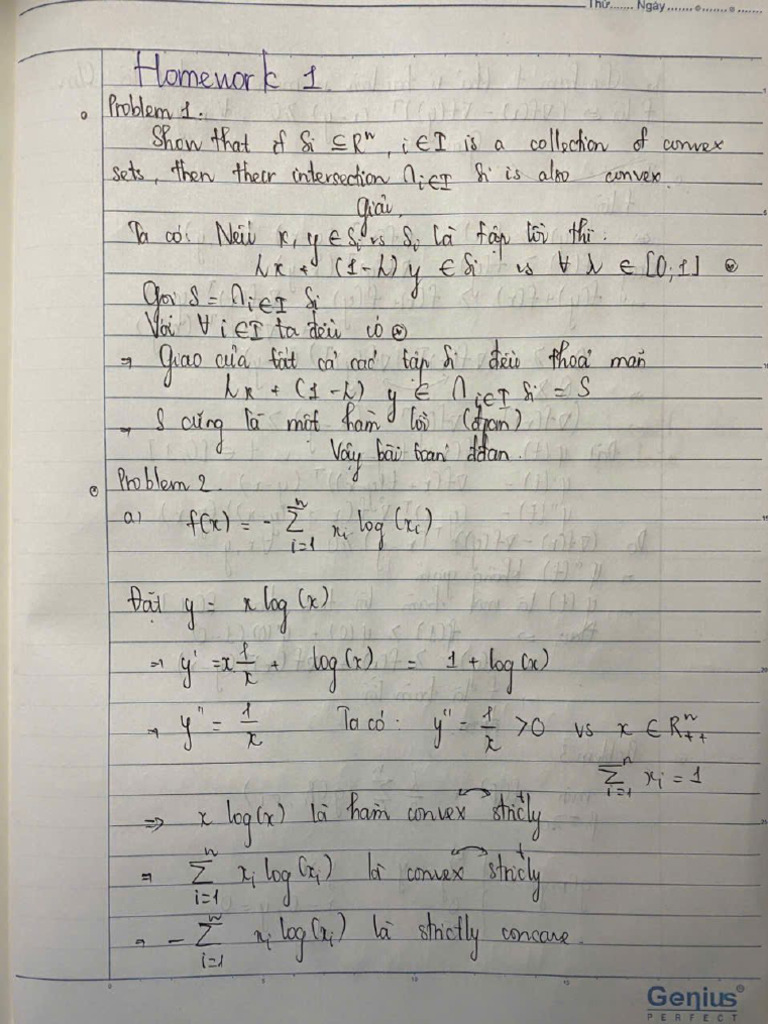 Thứ....... Ngày.......
Homework 1
Problem 1.
Show that if Si ⊆ Rⁿ, i ∈ I is a collection of convex
sets, then their intersection ∩i∈I Si is also convex.
Giải.
Ta có: Nếu x, y ∈ Si vs Si là tập lồi thì:
λx + (1-λ) y ∈ Si vs ∀ λ ∈ [0;1] ⊙
Gọi S = ∩i∈I Si
Với ∀ i ∈ I ta đều có ⊙
→ Giao của tất cả các tập Si đều thoả mãn
λx + (1-λ) y ∈ ∩i∈I Si = S
→ S cũng là một hàm lồi (đpcm)
Vậy bài toán
Problem 2.
a) f(x) = - ∑ⁿi=1 xi log(xi)
Đặt y = x log(x)
→ y' = x 1/x + log(x) = 1 + log(x)
→ y'' = 1/x Ta có: y'' = 1/x > 0 vs x ∈ Rⁿ++
∑ⁿi=1 xi = 1
⇒ x log(x) là hàm convex strictly
⇒ ∑ⁿi=1 xi log(xi) là convex strictly
→ - ∑ⁿi=1 xi log(xi) là strictly concave.
Genius
PERFECT